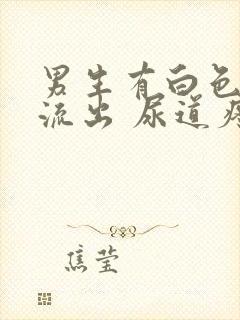 男生有白色
流出 尿道疼
焦莹